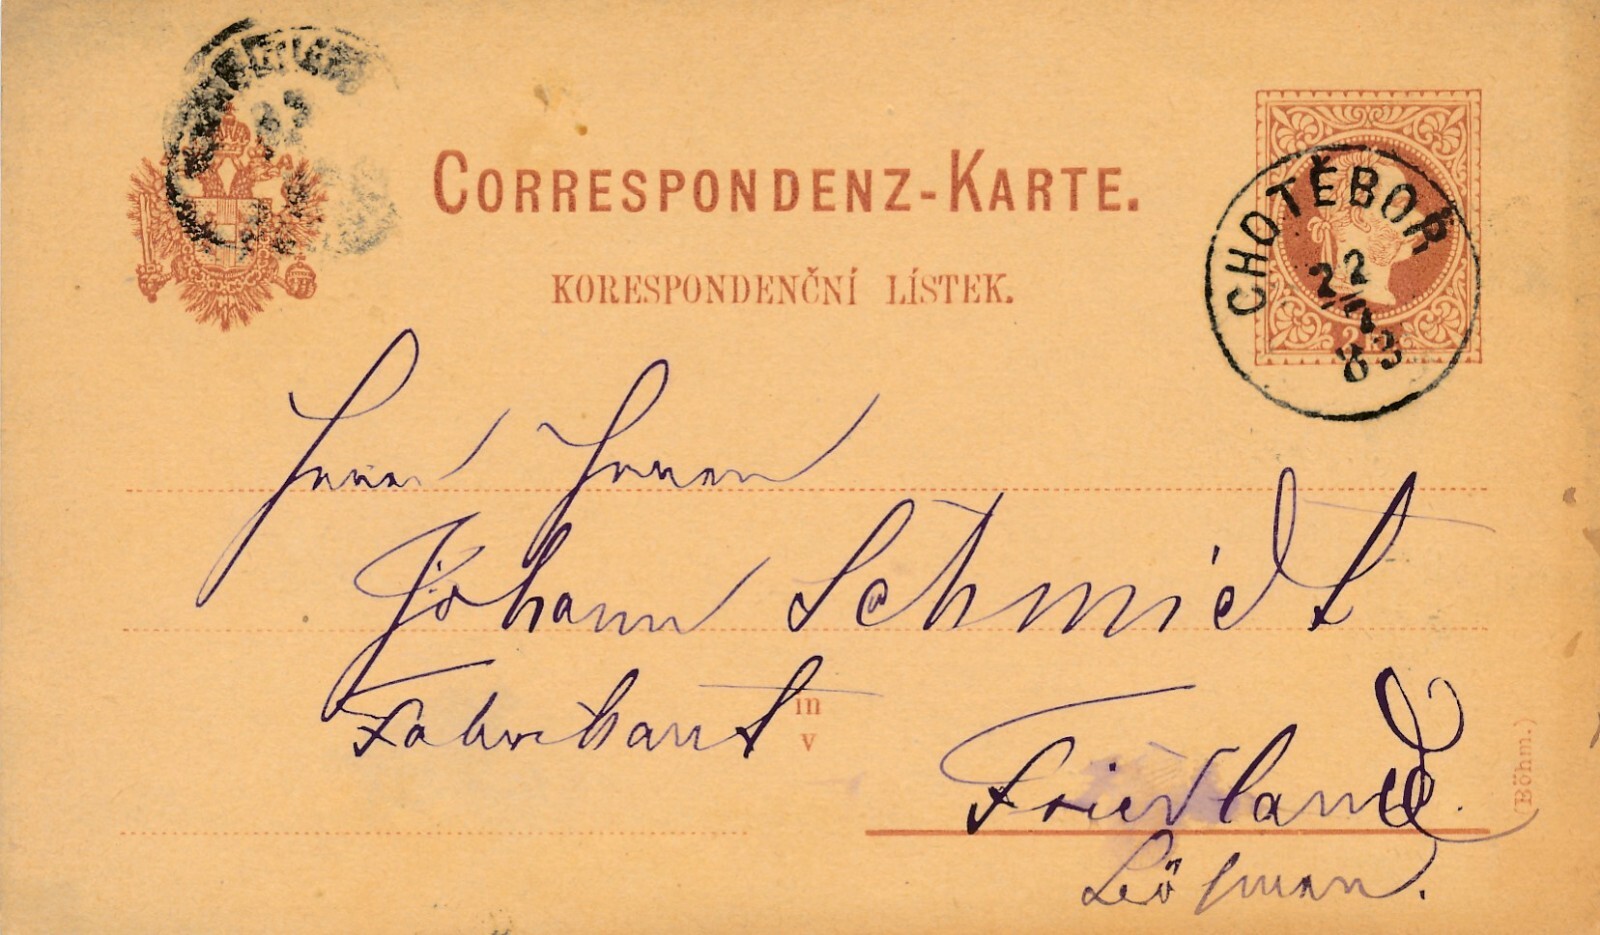 CORRESPONDENZ-KARTE.
KORESPONDENČNÍ LÍSTEK.
CHOTĚBOŘ
22
83
2
Herrn Herrn
Johann Schmidt
Fabrikant
in
v
Friedland.
Böhmen.
(Böhm.)